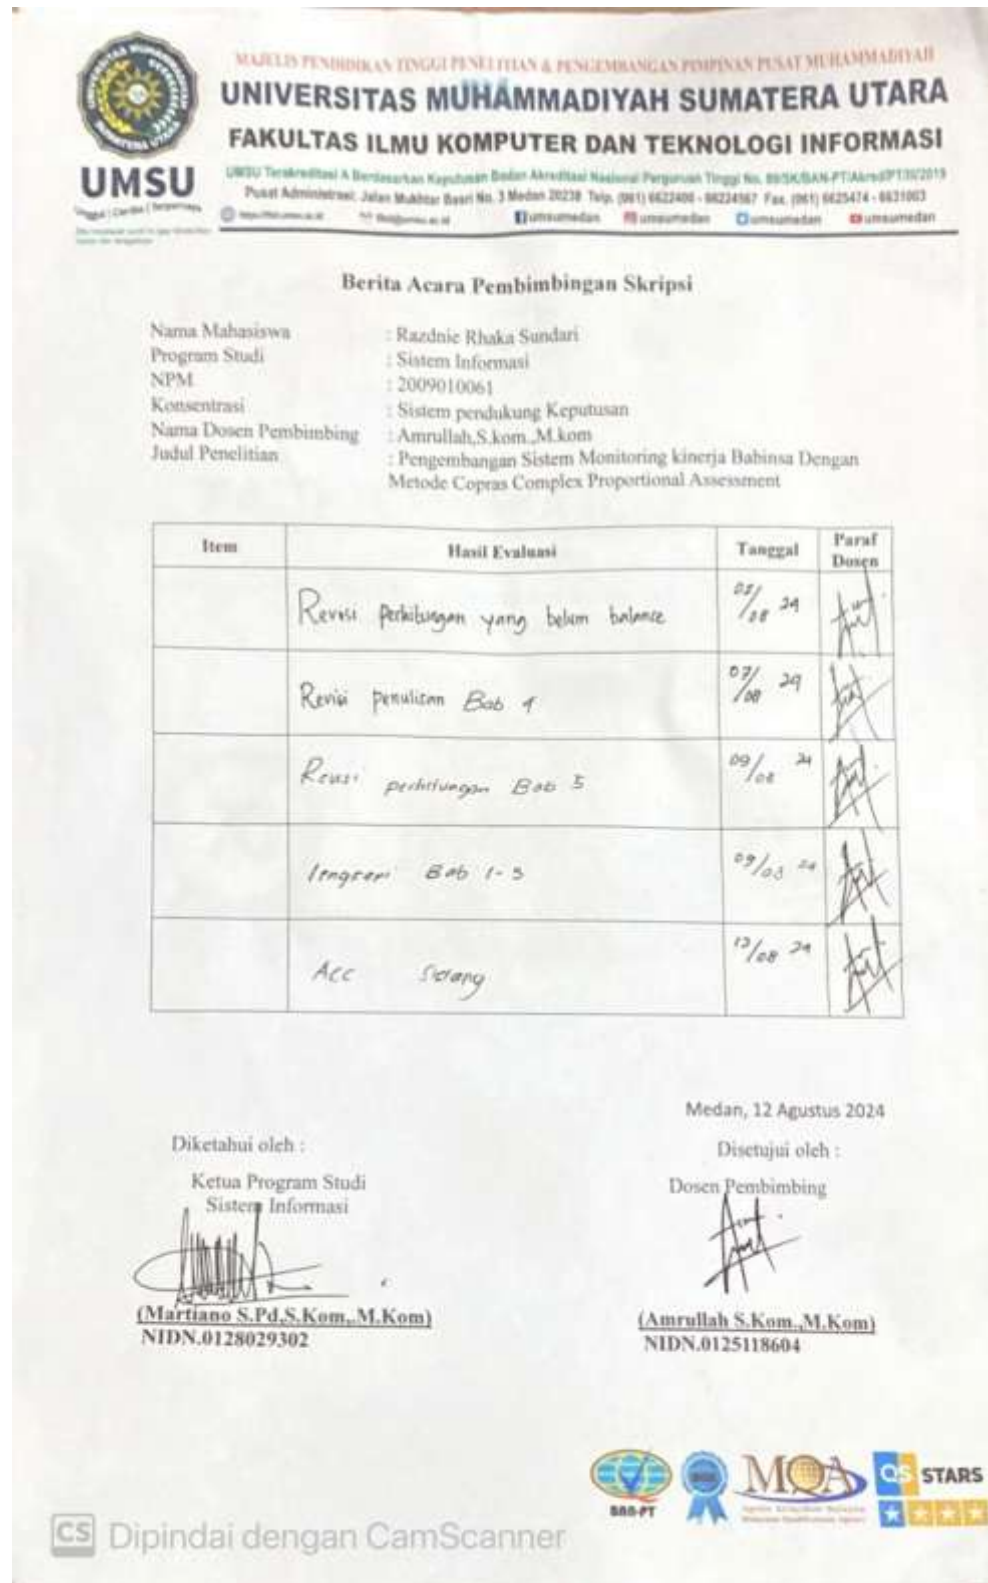 MAJELIS PENDIDIKAN TINGGI PENELITIAN & PENGEMBANGAN PIMPINAN PUSAT MUHAMMADIYAH
UNIVERSITAS MUHAMMADIYAH SUMATERA UTARA
FAKULTAS ILMU KOMPUTER DAN TEKNOLOGI INFORMASI
UMSU
UMSU Terakreditasi A Berdasarkan Keputusan Badan Akreditasi Nasional Perguruan Tinggi No. 89/SK/BAN-PT/Akred/PT/III/2019
Pusat Administrasi: Jalan Mukhtar Basri No. 3 Medan 20238 Telp. (061) 6622400 - 66224567 Fax. (061) 6625474 - 6631003
umsumedan umsumedan umsumedan umsumedan
Unggul | Cerdas | Terpercaya
Berita Acara Pembimbingan Skripsi
Nama Mahasiswa : Razdnie Rhaka Sundari
Program Studi : Sistem Informasi
NPM : 2009010061
Konsentrasi : Sistem pendukung Keputusan
Nama Dosen Pembimbing : Amrullah,S.kom.,M.kom
Judul Penelitian : Pengembangan Sistem Monitoring kinerja Babinsa Dengan
Metode Copras Complex Proportional Assessment
Item Hasil Evaluasi Tanggal Paraf
Dosen
Revisi perhitungan yang belum balance 05/08 24
Revisi penulisan Bab 4 07/08 24
Revisi perhitungan Bab 5 09/08 24
Bab 1-5 09/08 24
Acc Sidang 12/08 24
Medan, 12 Agustus 2024
Diketahui oleh : Disetujui oleh :
Ketua Program Studi Dosen Pembimbing
Sistem Informasi
(Martiano S.Pd,S.Kom,.M.Kom) (Amrullah S.Kom.,M.Kom)
NIDN.0128029302 NIDN.0125118604
BAN-PT
MQA
QS STARS
CS Dipindai dengan CamScanner